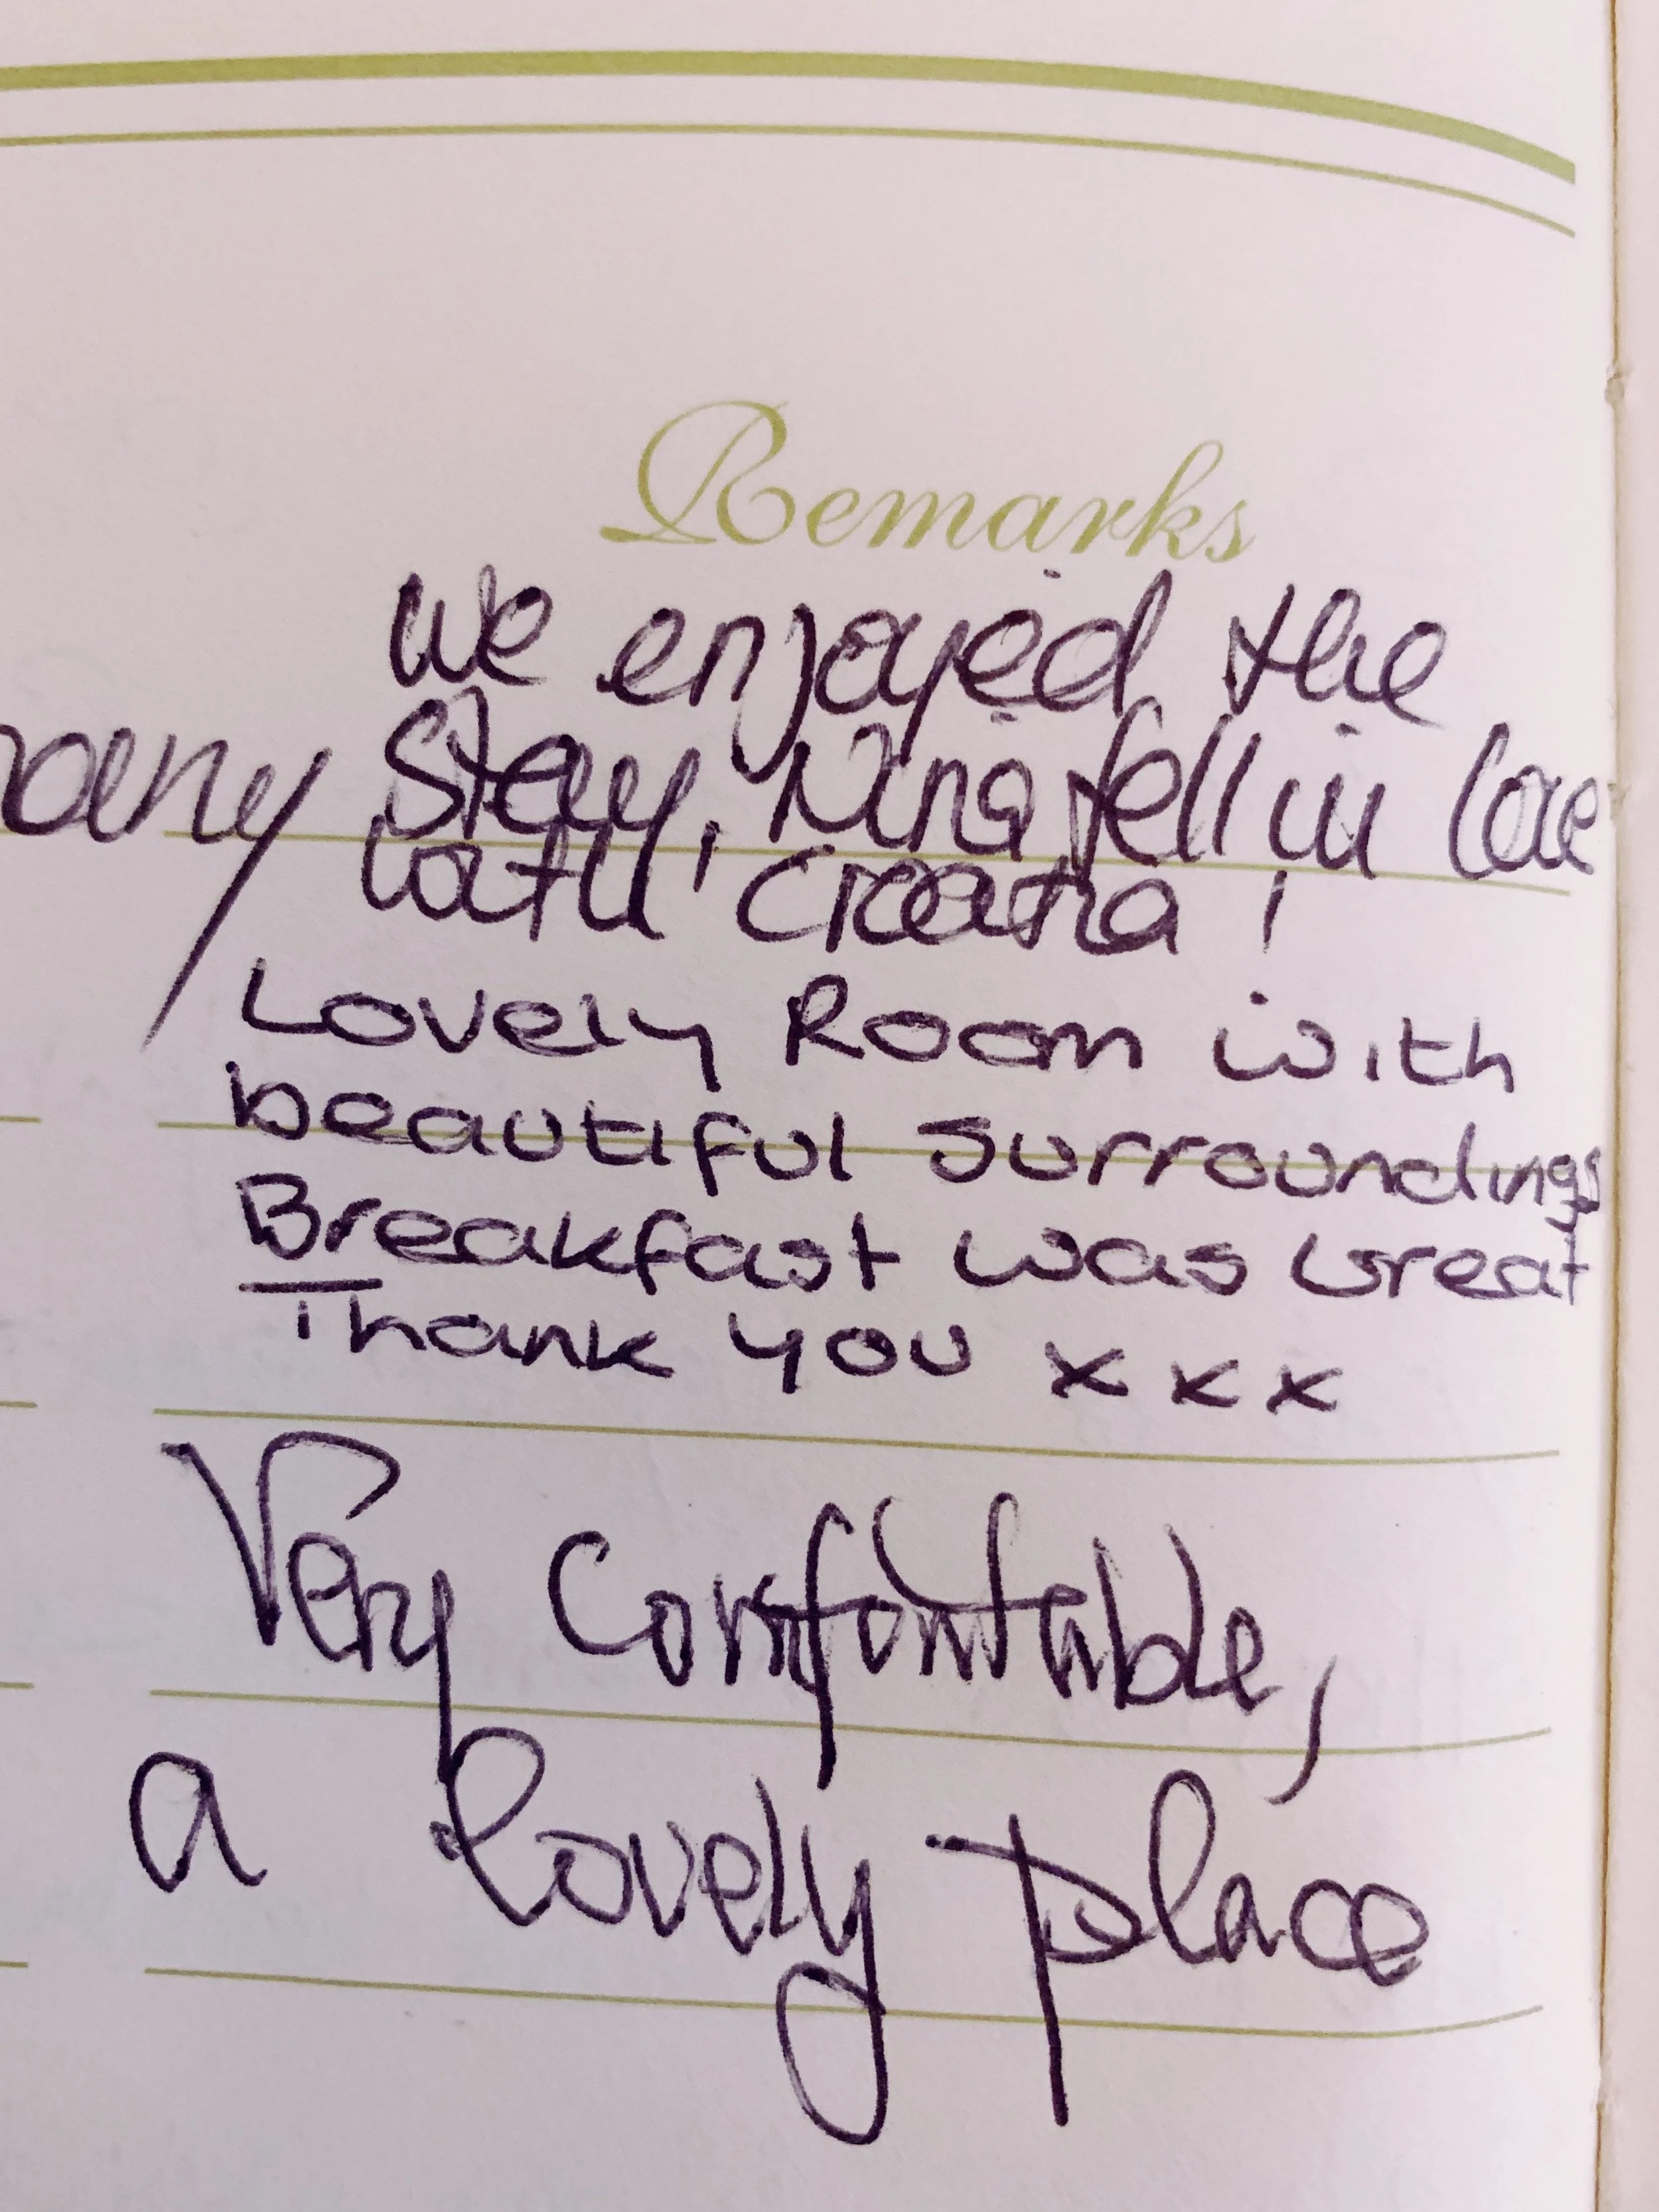 Remarks
We enjoyed the
many stay, Nina fell in love
with
Lovely Room with
beautiful surroundings
Breakfast was Great
Thank you x x x
Very Comfortable,
a lovely place